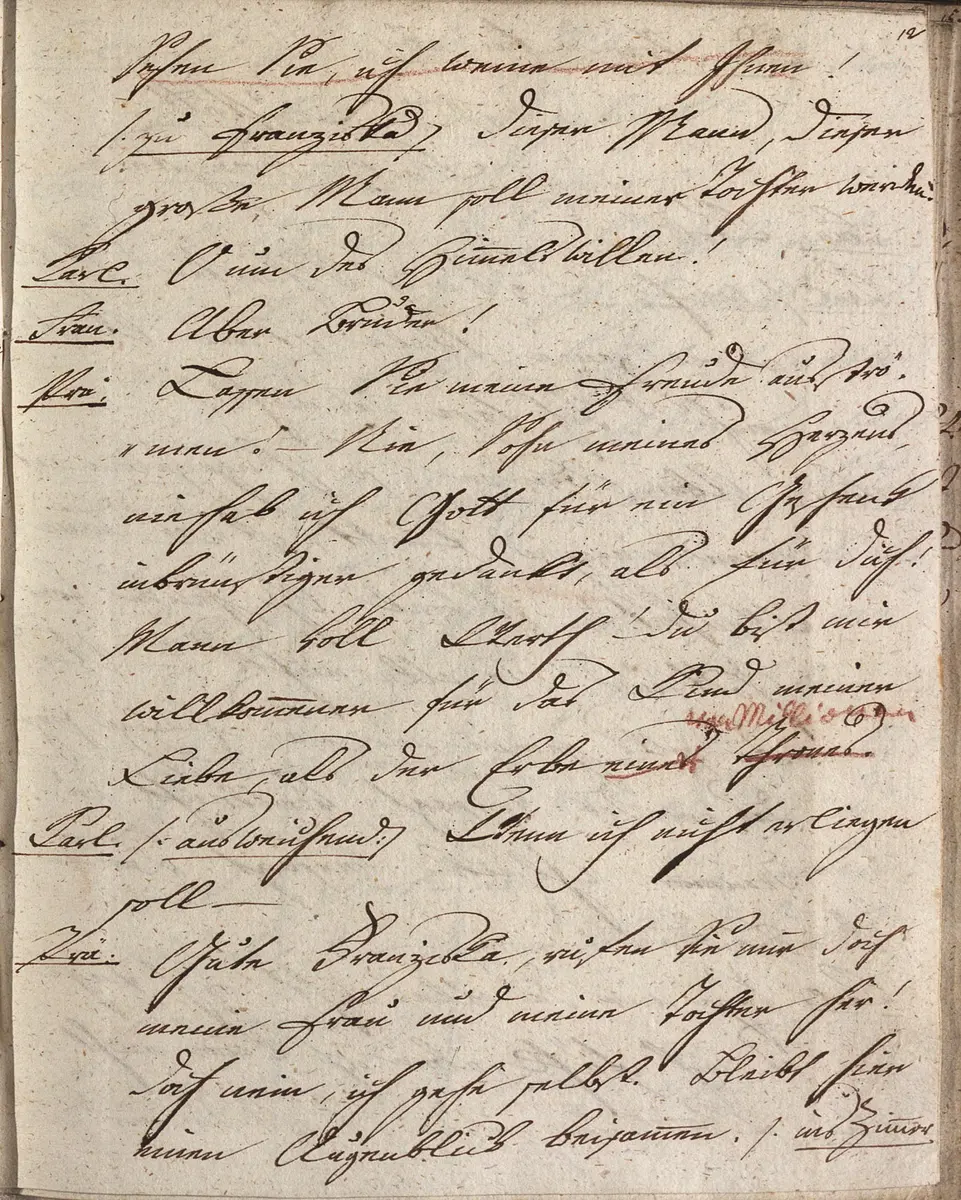 12
Sehen Sie, ich weine mit Ihnen!
/: zu Franziska :/ Dieser Mann, dieser
große Mann soll meiner Tochter werden.
Carl. O um des Himmels willen!
Fran. Aber Bruder!
Prä. Lassen Sie meine Freude ausströ-
men! – Nie, Sohn meines Herzens,
nie hab ich Gott für ein Geschenk
inbrünstiger gedankt, als für dich!
Mann voll Werth! du bist mir
willkom̅ener für das Kind meiner
von Millionen
Liebe, als der Erbe eines Thrones.
Carl. /: ausweichend :/ Wenn ich nicht erliegen
soll –
Prä. Gute Franziska, rufen Sie mir doch
meine Frau und meine Tochter her!
doch nein, ich gehe selbst. Bleibt hier
einen Augenblick beisam̅en. /: ins Zim̅er